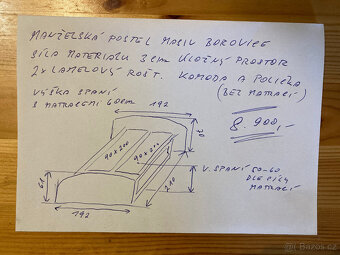 MANŽELSKÁ POSTEL MASIV BOROVICE
SÍLA MATERIÁLU 3cm ÚLOŽNÝ PROSTOR
2x LAMELOVÝ ROŠT. KOMODA A POLIČKA
(BEZ MATRACÍ)
VÝŠKA SPANÍ
S MATRACEMI 60cm
8.900,-
192
90x200
90x200
V. SPANÍ 50-60
DLE VÝŠKY
MATRACÍ
210
192
Bazoš.cz